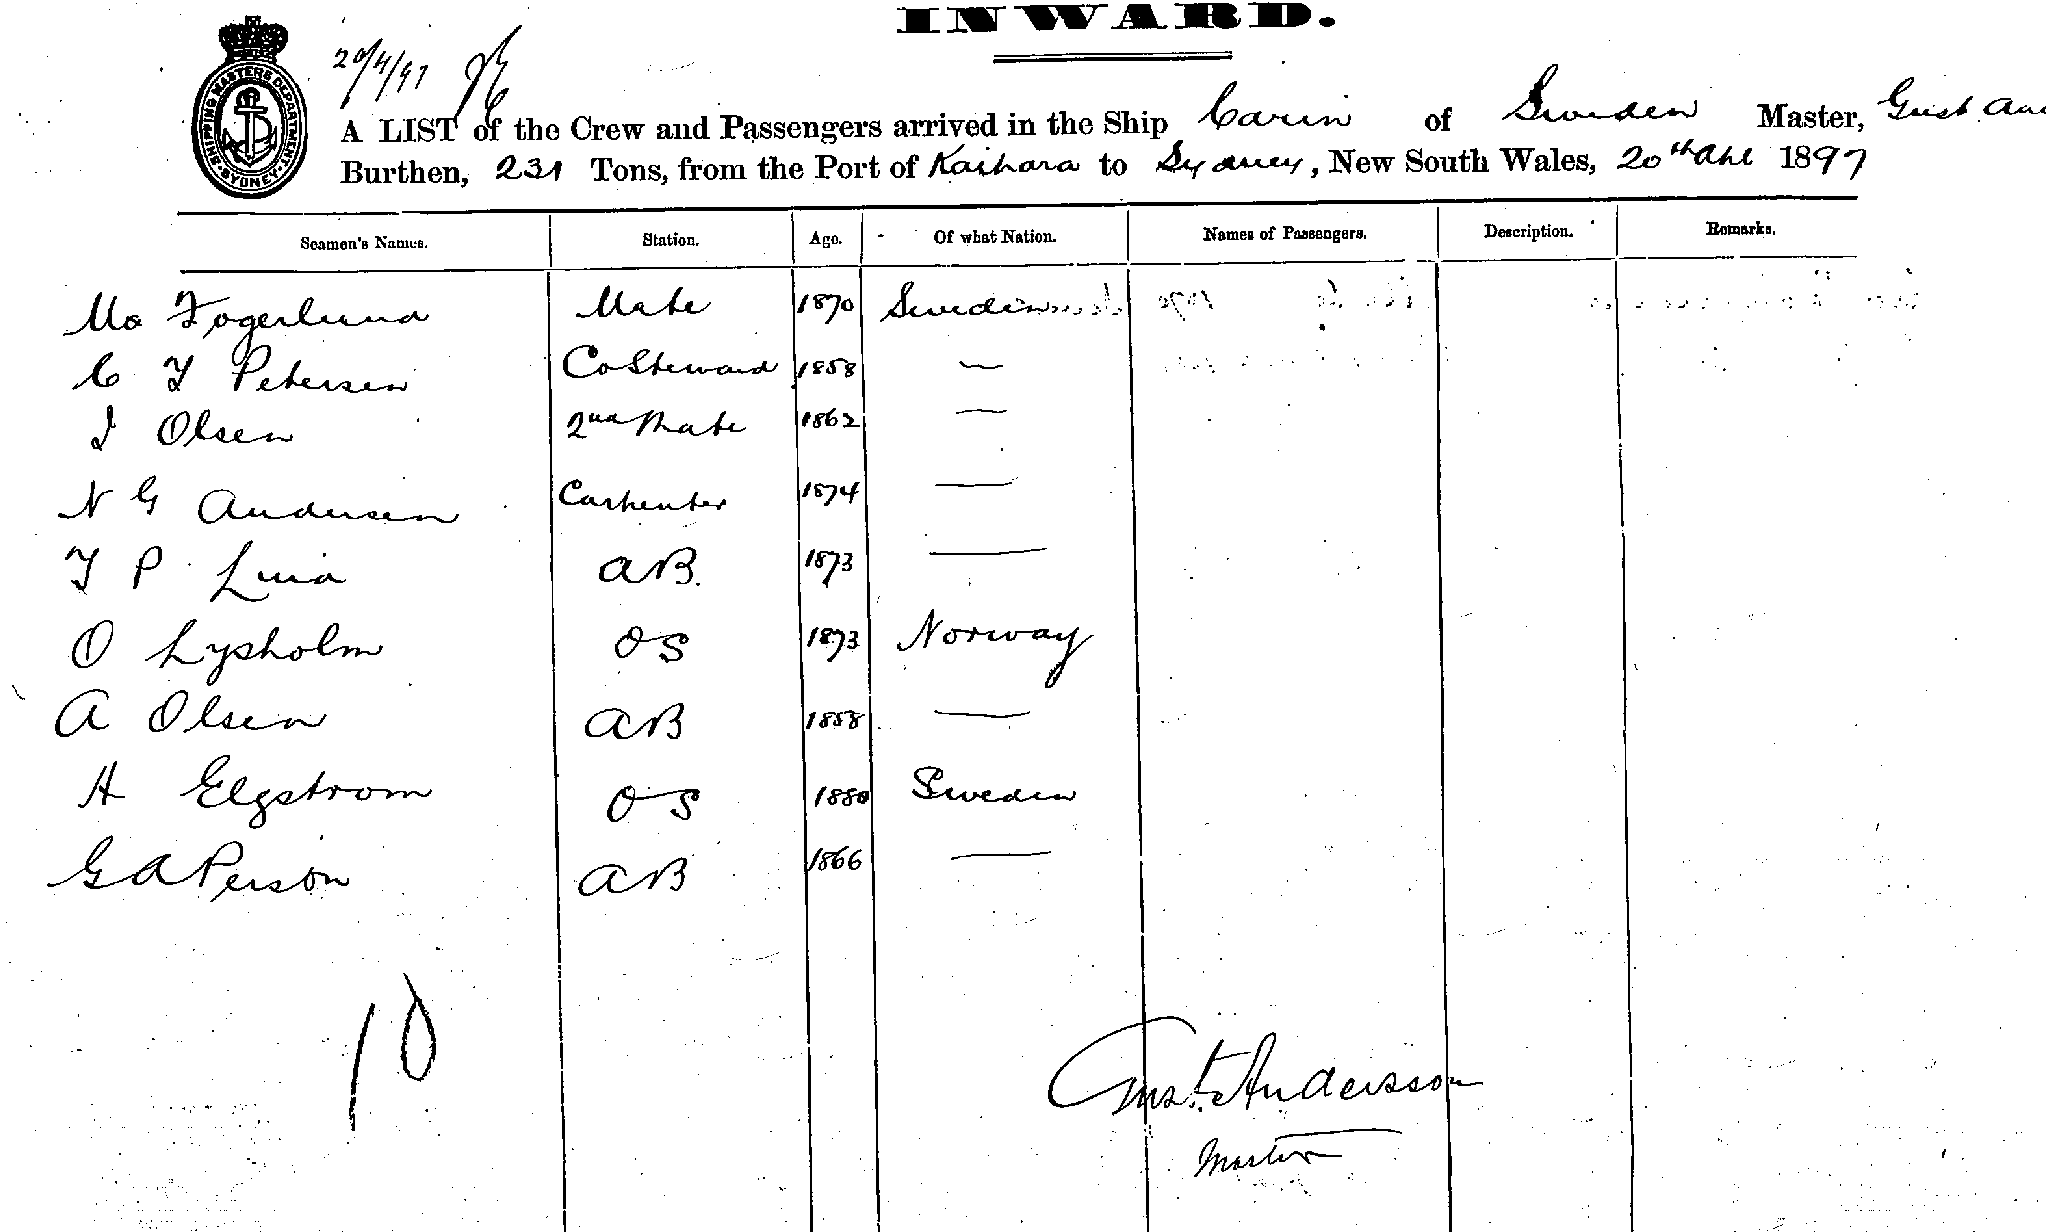 INWARD.
SHIPPING MASTERS DEPARTMENT SYDNEY
20/4/97
A LIST of the Crew and Passengers arrived in the Ship Carin of Sweden Master, Gust And
Burthen, 231 Tons, from the Port of Kaipara to Sydney, New South Wales, 20th Apl 1897
Seamen's Names. Station. Age. Of what Nation. Names of Passengers. Description. Remarks.
Fogerlund Mate 1870 Sweden
C F Petersen Co Steward 1858 —
J Olsen 2nd Mate 1862 —
N G Andersen Carpenter 1874 —
P AB. 1873 —
O Lysholm OS 1873 Norway
A Olsen AB 1858 —
H Elgstrom OS 1880 Sweden
G A Person AB 1866 —
10
Gust. Andersson
Master